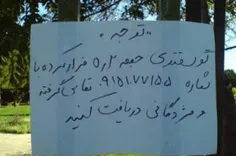 توجه
گوسفندی جمعه فرار کرده با
شماره ۰۹۱۵۱۷۷۱۵۵ تماس گرفته
و مژدگانی دریافت کنید